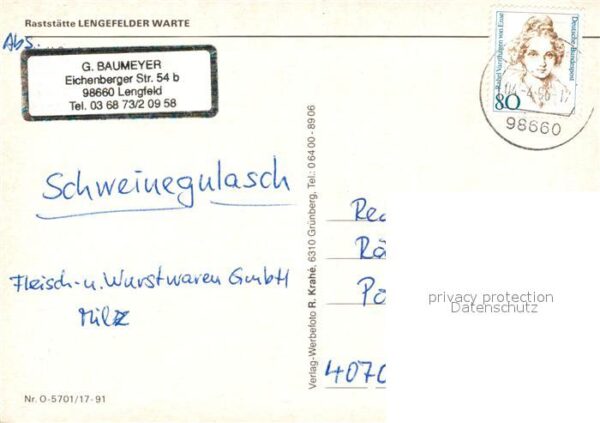 Raststätte LENGEFELDER WARTE
Abs.
G. BAUMEYER
Eichenberger Str. 54 b
98660 Lengfeld
Tel. 03 68 73/2 09 58
Deutsche Bundespost
Rahel Varnhagen von Ense
80
98660
Schweinegulasch
Fleisch- u. Wurstwaren GmbH
Milz
Verlag-Werbefoto R. Krahé, 6310 Grünberg. Tel.: 0 64 00 - 89 06
Po
4070
privacy protection
Datenschutz
Nr. O-5701/17-91